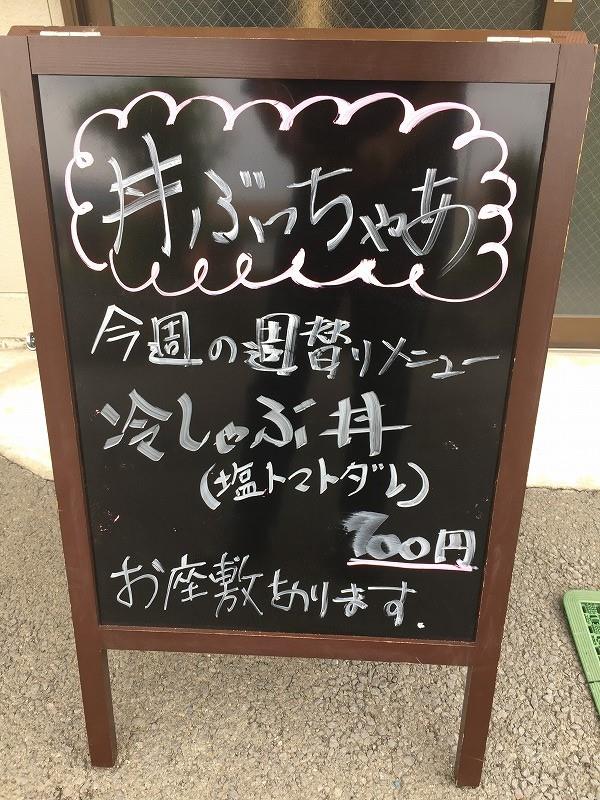 丼ぶっちゃあ
今週の週替りメニュー
冷しゃぶ丼
(塩トマトダレ)
700円
お座敷あります.